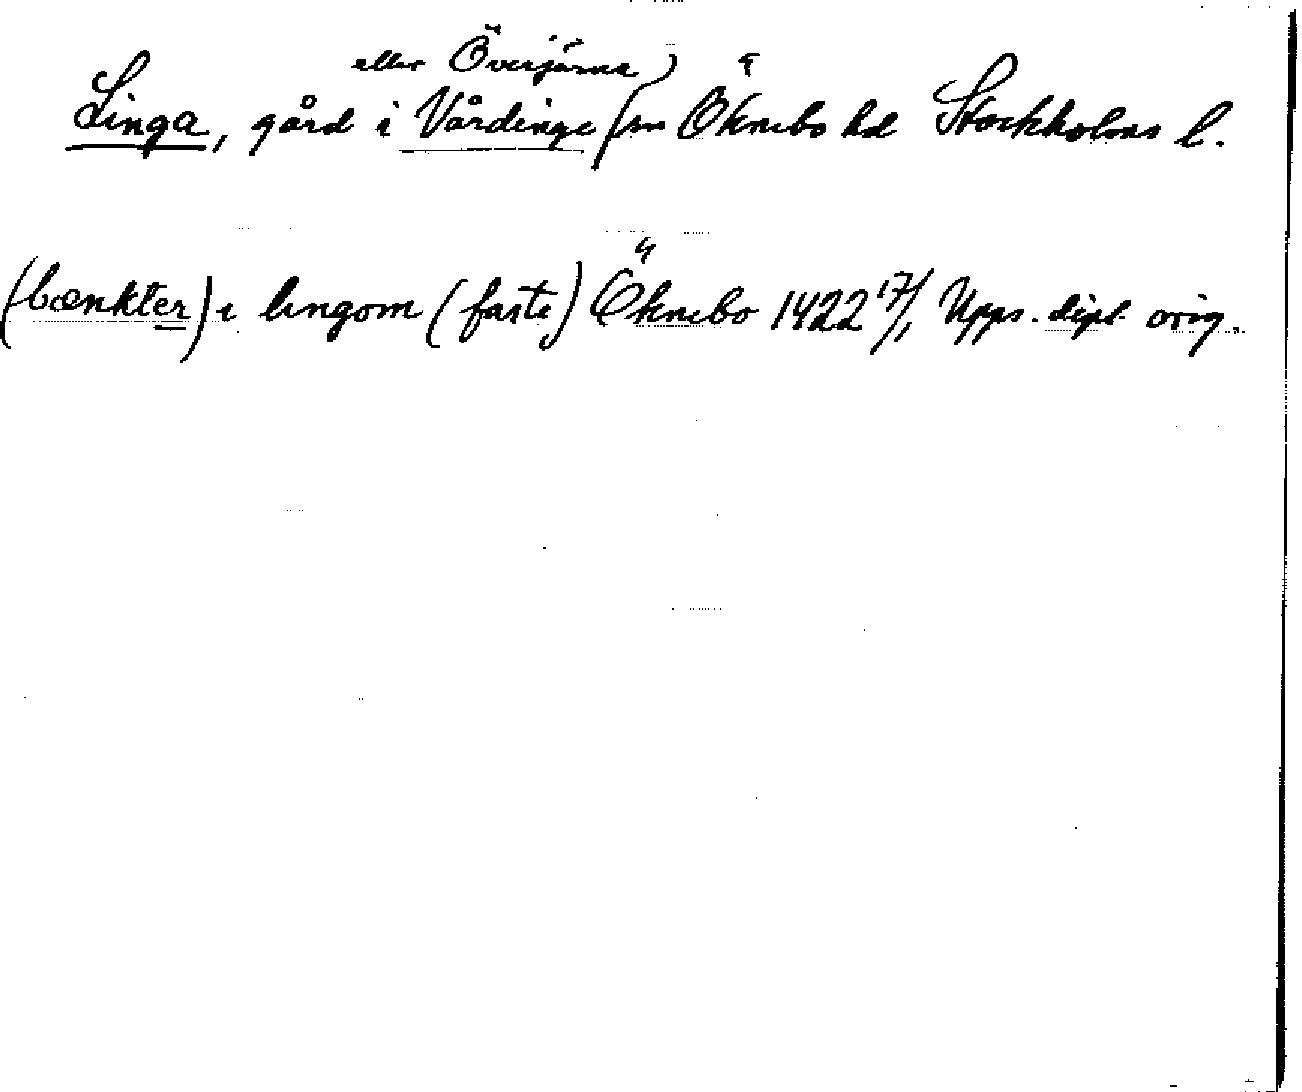 eller Överjärna)
Linga, gård i Vårdinge sn Öknebo hd Stockholms l.
(bænkter) i lingom (faste) Öknebo 1422 17/1 Upps. dipl. orig.